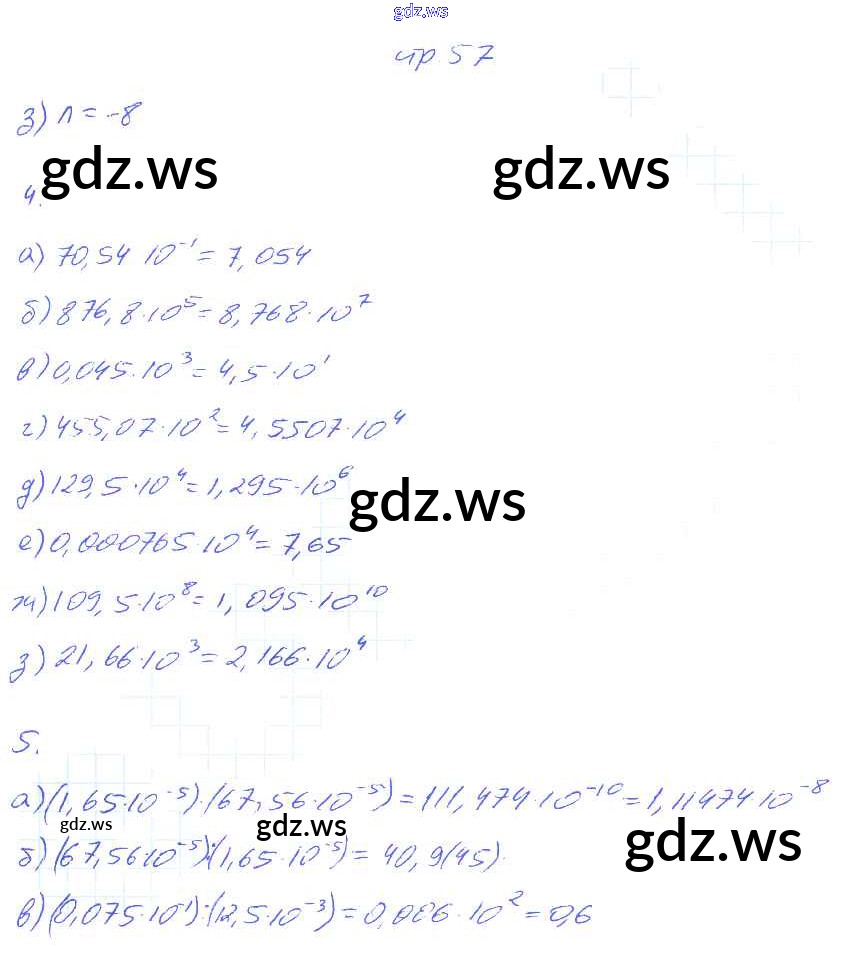 gdz.ws
стр. 57
з) n = -8
gdz.ws gdz.ws
4.
а) 70,54 · 10⁻¹ = 7,054
б) 876,8 · 10⁵ = 8,768 · 10⁷
в) 0,045 · 10³ = 4,5 · 10¹
г) 455,07 · 10² = 4,5507 · 10⁴
д) 129,5 · 10⁴ = 1,295 · 10⁶
gdz.ws
е) 0,000765 · 10⁴ = 7,65
ж) 109,5 · 10⁸ = 1,095 · 10¹⁰
з) 21,66 · 10³ = 2,166 · 10⁴
5.
а) (1,65 · 10⁻⁵) · (67,56 · 10⁻⁵) = 111,474 · 10⁻¹⁰ = 1,11474 · 10⁻⁸
gdz.ws gdz.ws gdz.ws
б) (67,56 · 10⁻⁵) : (1,65 · 10⁻⁵) = 40,9(45).
в) (0,075 · 10¹) : (12,5 · 10⁻³) = 0,006 · 10² = 0,6